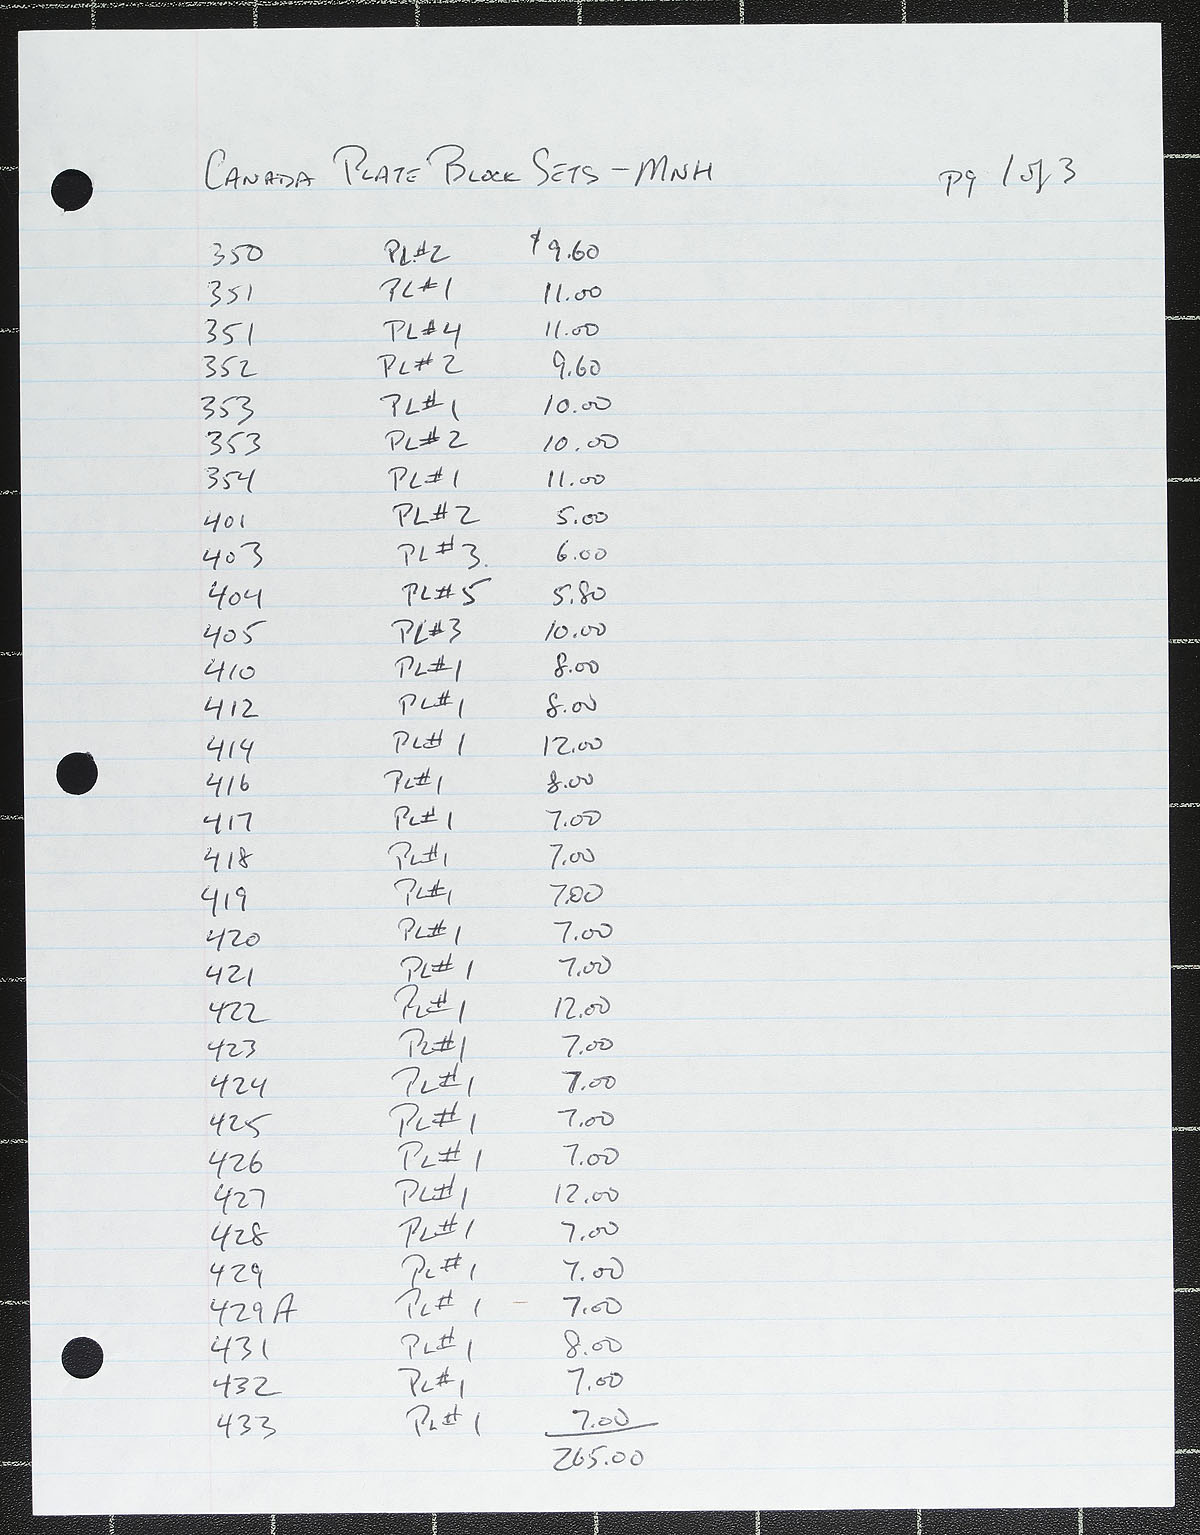 CANADA PLATE BLOCK SETS - MNH pg 1 of 3
350 PL#2 $9.60
351 PL#1 11.00
351 PL#4 11.00
352 PL#2 9.60
353 PL#1 10.00
353 PL#2 10.00
354 PL#1 11.00
401 PL#2 5.00
403 PL#3 6.00
404 PL#5 5.80
405 PL#3 10.00
410 PL#1 8.00
412 PL#1 8.00
414 PL#1 12.00
416 PL#1 8.00
417 PL#1 7.00
418 PL#1 7.00
419 PL#1 7.00
420 PL#1 7.00
421 PL#1 7.00
422 PL#1 12.00
423 PL#1 7.00
424 PL#1 7.00
425 PL#1 7.00
426 PL#1 7.00
427 PL#1 12.00
428 PL#1 7.00
429 PL#1 7.00
429A PL#1 - 7.00
431 PL#1 8.00
432 PL#1 7.00
433 PL#1 7.00
265.00